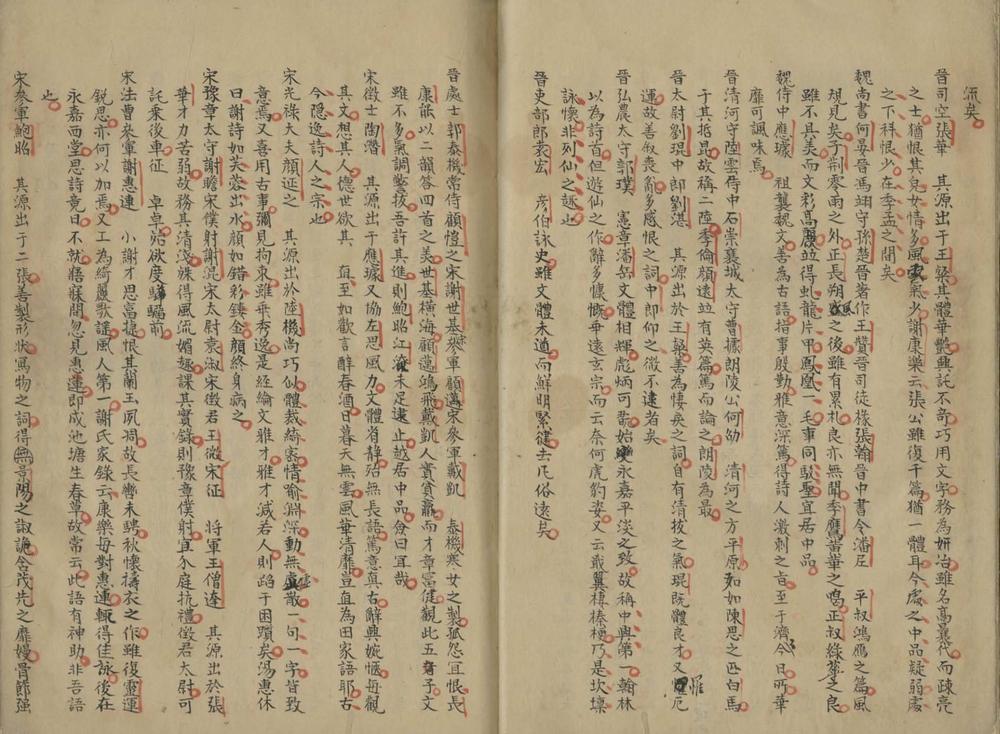 流矣
晉司空張華　其源出于王粲其體華艷興託不奇巧用文字務為妍冶雖名高曩代而疎亮
之士猶恨其兒女情多風雲氣少謝康樂云張公雖復千篇猶一體耳今處之中品疑弱處
之下科恨少在季孟之間矣
魏尚書何晏晉馮翊守孫楚晉著作王贊晉司徒掾張翰晉中書令潘尼　平叔鴻鴈之篇風
規見矣子荆零雨之外正長朔風之後雖有累札良亦無聞季鷹黃華之唱正叔綠蘩之良
雖不具美而文彩高麗並得虬龍片甲鳳凰一毛事同駁聖宜居中品
魏侍中應璩　祖襲魏文善為古語指事殷勤雅意深篤得詩人激刺之旨至于濟今日所華
靡可諷味焉
晉清河守陸雲侍中石崇襄城太守曹攄朗陵公何劭　清河之方平原如如陳思之匹白馬
于其抵昆故稱二陸季倫顏遠並有英篇篤而論之朗陵為最
晉太尉劉琨中郎劉湛　其源出於王粲善為悽戾之詞自有清拔之氣琨既體良才又罹厄
運故善叙喪亂多感恨之詞中郎仰之微不逮者矣
晉弘農太守郭璞　憲章潘岳文體相輝彪炳可翫始永嘉平淡之致故稱中興第一翰林
以為詩首但遊仙之作辭多慷慨乖遠玄宗而云奈何虎豹姿又云戢翼棲榛梗乃是坎壈
詠懷非列仙之趣也
晉吏部郎袁宏　彦伯詠史雖文體未遒而鮮明緊健去凡俗遠矣
晉處士郭泰機常侍顧愷之宋謝世基參軍顧邁宋參軍戴凱　泰機寒女之製孤怨宜恨長
康能以二韻答四首之美世基橫海顧邁鴻飛戴凱人實貧羸而才章富健觀此五子文
雖不多氣調警拔吾許其進則鮑昭江淹未足逮止越居中品僉曰宜哉
宋徵士陶潛　其源出于應璩又協左思風力文體省靜殆無長語篤意真古辭興婉愜每觀
其文想其人德世欲其　直至如歡言醉春酒日暮天無雲風華清靡豈直為田家語耶古
今隱逸詩人之宗也
宋光祿大夫顏延之　其源出於陸機尚巧似體裁綺密情喻淵深動無虛散一句一字皆致
意焉又喜用古事彌見拘束雖乖秀逸是經綸文雅才雅才減若人則蹈于困躓矣湯惠休
曰謝詩如芙蓉出水顏如錯彩鏤金顏終身病之
宋豫章太守謝瞻宋僕射謝混宋太尉袁淑宋徵君王微宋征　將軍王僧達　其源出於張
華才力苦弱故務其清淺殊得風流媚趣課其實錄則豫章僕射宜分庭抗禮徵君太尉可
託乘後車征　卓卓宛欲度驊騮前
宋法曹參軍謝惠連　小謝才思富捷恨其蘭玉夙凋故長轡未騁秋懷擣衣之作雖復靈運
銳思亦何以加焉又工為綺麗歌謠風人第一謝氏家錄云康樂每對惠連輒得佳詠後在
永嘉西堂思詩竟日不就寤寐間忽見惠連即成池塘生春草故常云此語有神助非吾語
也
宋參軍鮑昭　其源出于二張善製形狀寫物之詞得景陽之諔詭含茂先之靡嫚骨節强